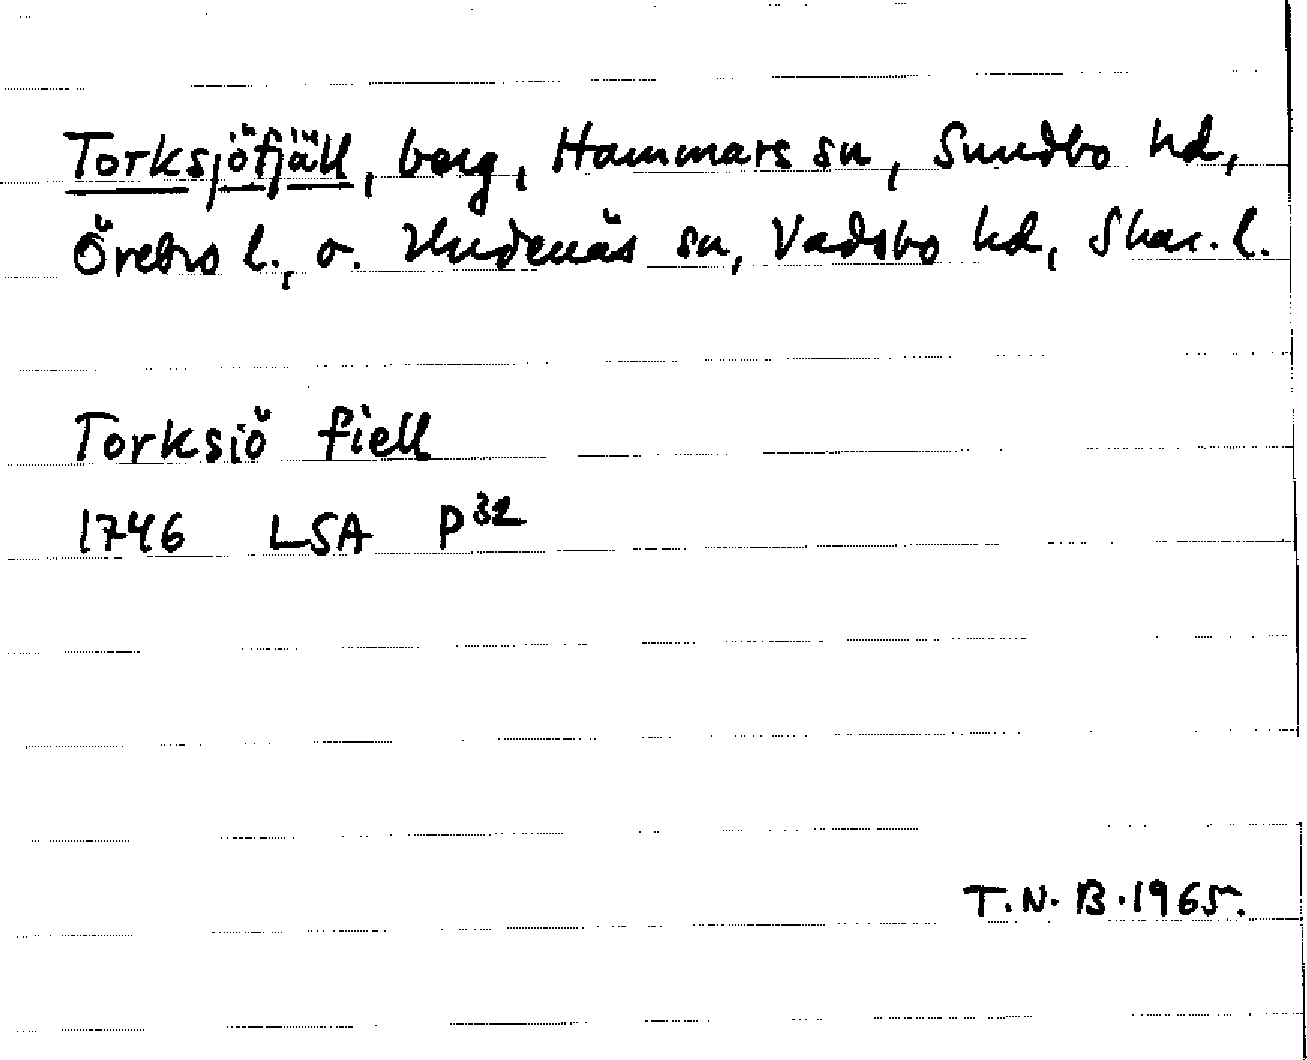 Torksjöfjäll, berg, Hammars sn, Sundbo hd,
Örebro l., o. Undenäs sn, Vadsbo hd, Skar. l.
Torksiö fiell
1746 LSA P 32
T.N.B. 1965.